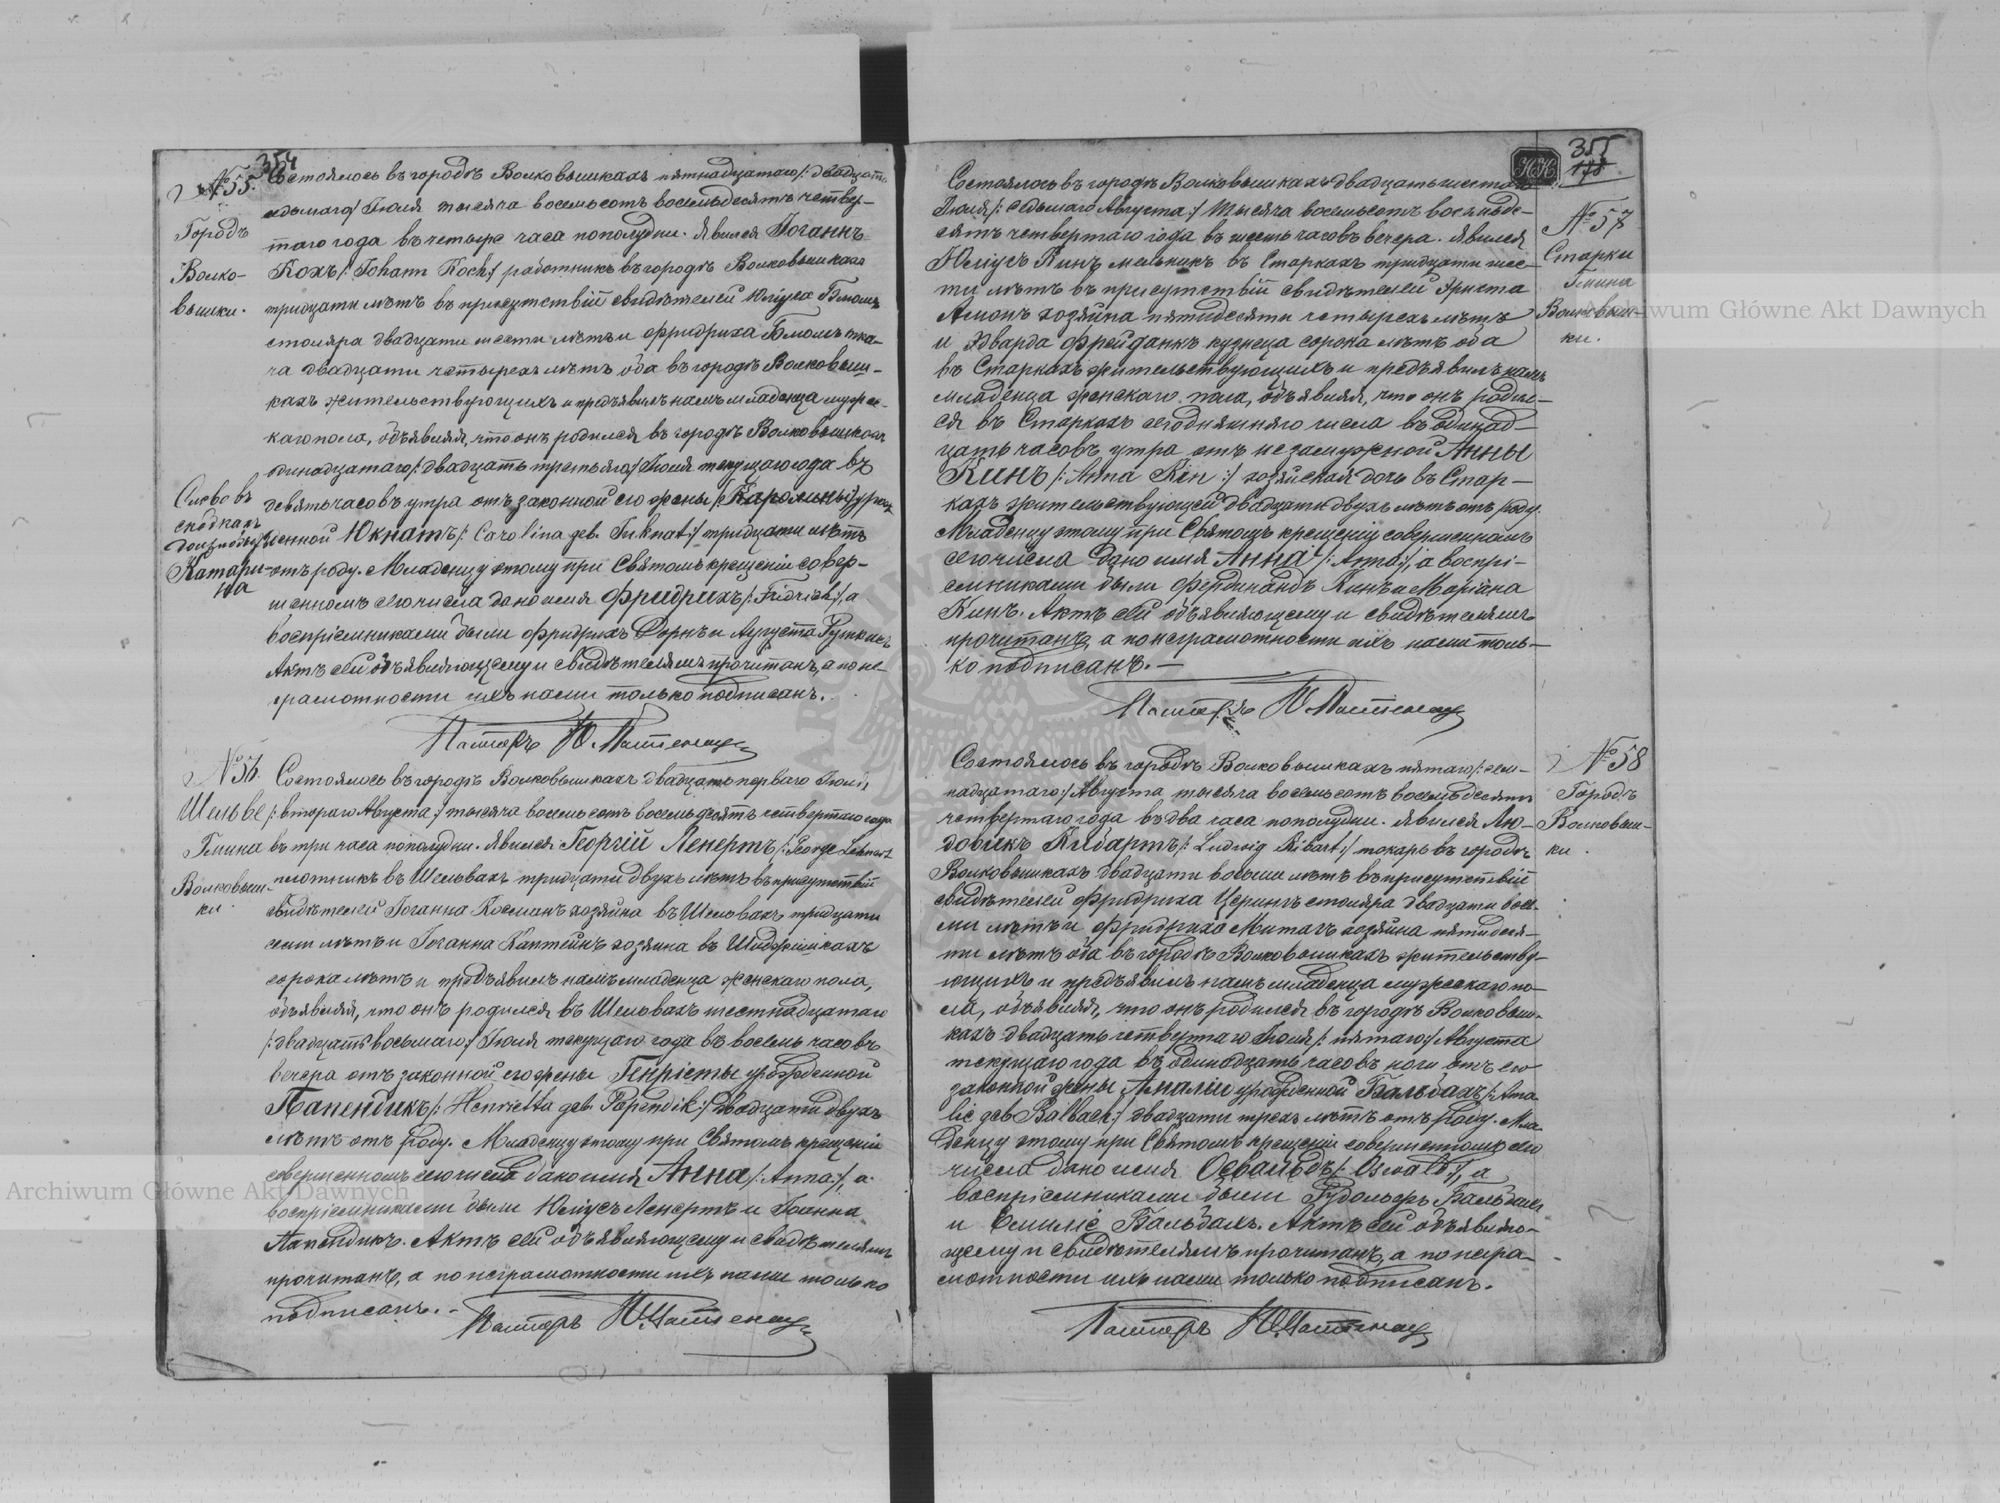 354
№ 55.
Городъ
Волко-
вышки.
Состоялось въ городѣ Волковышкахъ пятнадцатаго /: двадцать
седьмаго :/ Іюля тысяча восемьсотъ восемьдесятъ четвер-
таго года въ четыре часа пополудни. Явился Іоганнъ
Кохъ /: Johann Koch :/ работникъ въ городѣ Волковышкахъ
тридцати лѣтъ въ присутствіи свидѣтелей Юліуса Блюмъ
столяра двадцати шести лѣтъ и Фридриха Блюмъ тка-
ча двадцати четырехъ лѣтъ оба въ городѣ Волковыш-
кахъ жительствующихъ и предъявилъ намъ младенца мужес-
каго пола, объявляя, что онъ родился въ городѣ Волковышкахъ
одинадцатаго /: двадцать третьяго :/ Іюля текущаго года въ
девять часовъ утра отъ законной его жены /: Каролины :/ урож-
Слово въ
скобкахъ
Катари-
на
денной Юкнатъ /: Carolina geb. Juknat :/ тридцати лѣтъ
отъ роду. Младенцу этому при Святомъ крещеніи совер-
шенномъ сего числа дано имя Фридрихъ /: Fridrich :/, а
воспріемниками были Фридрихъ Дорнъ и Августа
Актъ сей объявляющему и свидѣтелямъ прочитанъ, а по не-
грамотности ихъ нами только подписанъ.
Пасторъ
№ 56.
Шельве
Гмина
Волковыш-
ки.
Состоялось въ городѣ Волковышкахъ двадцать перваго Іюля
/: втораго Августа :/ тысяча восемьсотъ восемьдесятъ четвертаго года
въ три часа пополудни. Явился Георгій Ленертъ /: George Lehnert
плотникъ въ Шельвахъ тридцати двухъ лѣтъ въ присутствіи
свидѣтелей Іоганна Космانъ хозяина въ Шельвахъ тридцати
семи лѣтъ и Іоганна Каптейнъ хозяина въ
сорока лѣтъ и предъявилъ намъ младенца женскаго пола,
объявляя, что онъ родился въ Шельвахъ шестнадцатаго
/: двадцать восьмаго :/ Іюля текущаго года въ восемь часовъ
вечера отъ законной его жены Генріеты урожденной
Папендикъ /: Henrietta geb. Papendik :/ двадцати двухъ
лѣтъ отъ роду. Младенцу этому при Святомъ крещеніи
совершенномъ сего числа дано имя Анна /: Anna :/, а
воспріемниками были Юліусъ Ленертъ и Іоанна
Папендикъ. Актъ сей объявляющему и свидѣтелямъ
прочитанъ, а по неграмотности ихъ нами только
подписанъ.
Пасторъ
355
178
НК
№ 57
Старки
Гмина
Волковыш-
ки.
Состоялось въ городѣ Волковышкахъ двадцать шестаго
Іюля /: седьмаго Августа :/ тысяча восемьсотъ восемьде-
сятъ четвертаго года въ шесть часовъ вечера. Явился
Юліусъ Кинъ мельникъ въ Старкахъ тридцати шес-
ти лѣтъ въ присутствіи свидѣтелей Эрнста
Амонъ хозяина пятидесяти четырехъ лѣтъ
и Эдварда Фрейданкъ кузнеца сорока лѣтъ оба
въ Старкахъ жительствующихъ и предъявилъ намъ
младенца женскаго пола, объявляя, что онъ родил-
ся въ Старкахъ сегодняшняго числа въ одинад-
цать часовъ утра отъ незамужной Анны
Кинъ /: Anna Kin :/ хозяйская дочь въ Стар-
кахъ жительствующей двадцати двухъ лѣтъ отъ роду.
Младенцу этому при Святомъ крещеніи совершенномъ
сего числа дано имя Анна /: Anna :/, а воспрі-
емниками были Фердинандъ Кинъ и Маріана
Кинъ. Актъ сей объявляющему и свидѣтелямъ
прочитанъ, а по неграмотности ихъ нами толь-
ко подписанъ. —
Пасторъ
№ 58
Городъ
Волковыш-
ки.
Состоялось въ городѣ Волковышкахъ пятаго /: сем-
надцатаго :/ Августа тысяча восемьсотъ восемьдесятъ
четвертаго года въ два часа пополудни. Явился Лю-
довикъ Кибартъ /: Ludwig Kibart :/ токарь въ городѣ
Волковышкахъ двадцати восьми лѣтъ въ присутствіи
свидѣтелей Фридриха Церингъ столяра двадцати вось-
ми лѣтъ и Фридриха хозяина пятидеся-
ти лѣтъ оба въ городѣ Волковышкахъ жительству-
ющихъ и предъявилъ намъ младенца мужескаго по-
ла, объявляя, что онъ родился въ городѣ Волковыш-
кахъ двадцать четвертаго Іюля /: пятаго :/ Августа
текущаго года въ одинадцать часовъ ночи отъ его
законной жены Амаліи урожденной Бальбахъ /: Ama-
lie geb Balbach :/ двадцати трехъ лѣтъ отъ роду. Мла-
денцу этому при Святомъ крещеніи совершенномъ сего
числа дано имя Освальдъ /: Oswald :/, а
воспріемниками были Рудольфъ Бальбахъ
и Емиліе Бальбахъ. Актъ сей объявляю-
щему и свидѣтелямъ прочитанъ, а по негра-
мотности ихъ нами только подписанъ.
Пасторъ
Archiwum Główne Akt Dawnych
Archiwum Główne Akt Dawnych